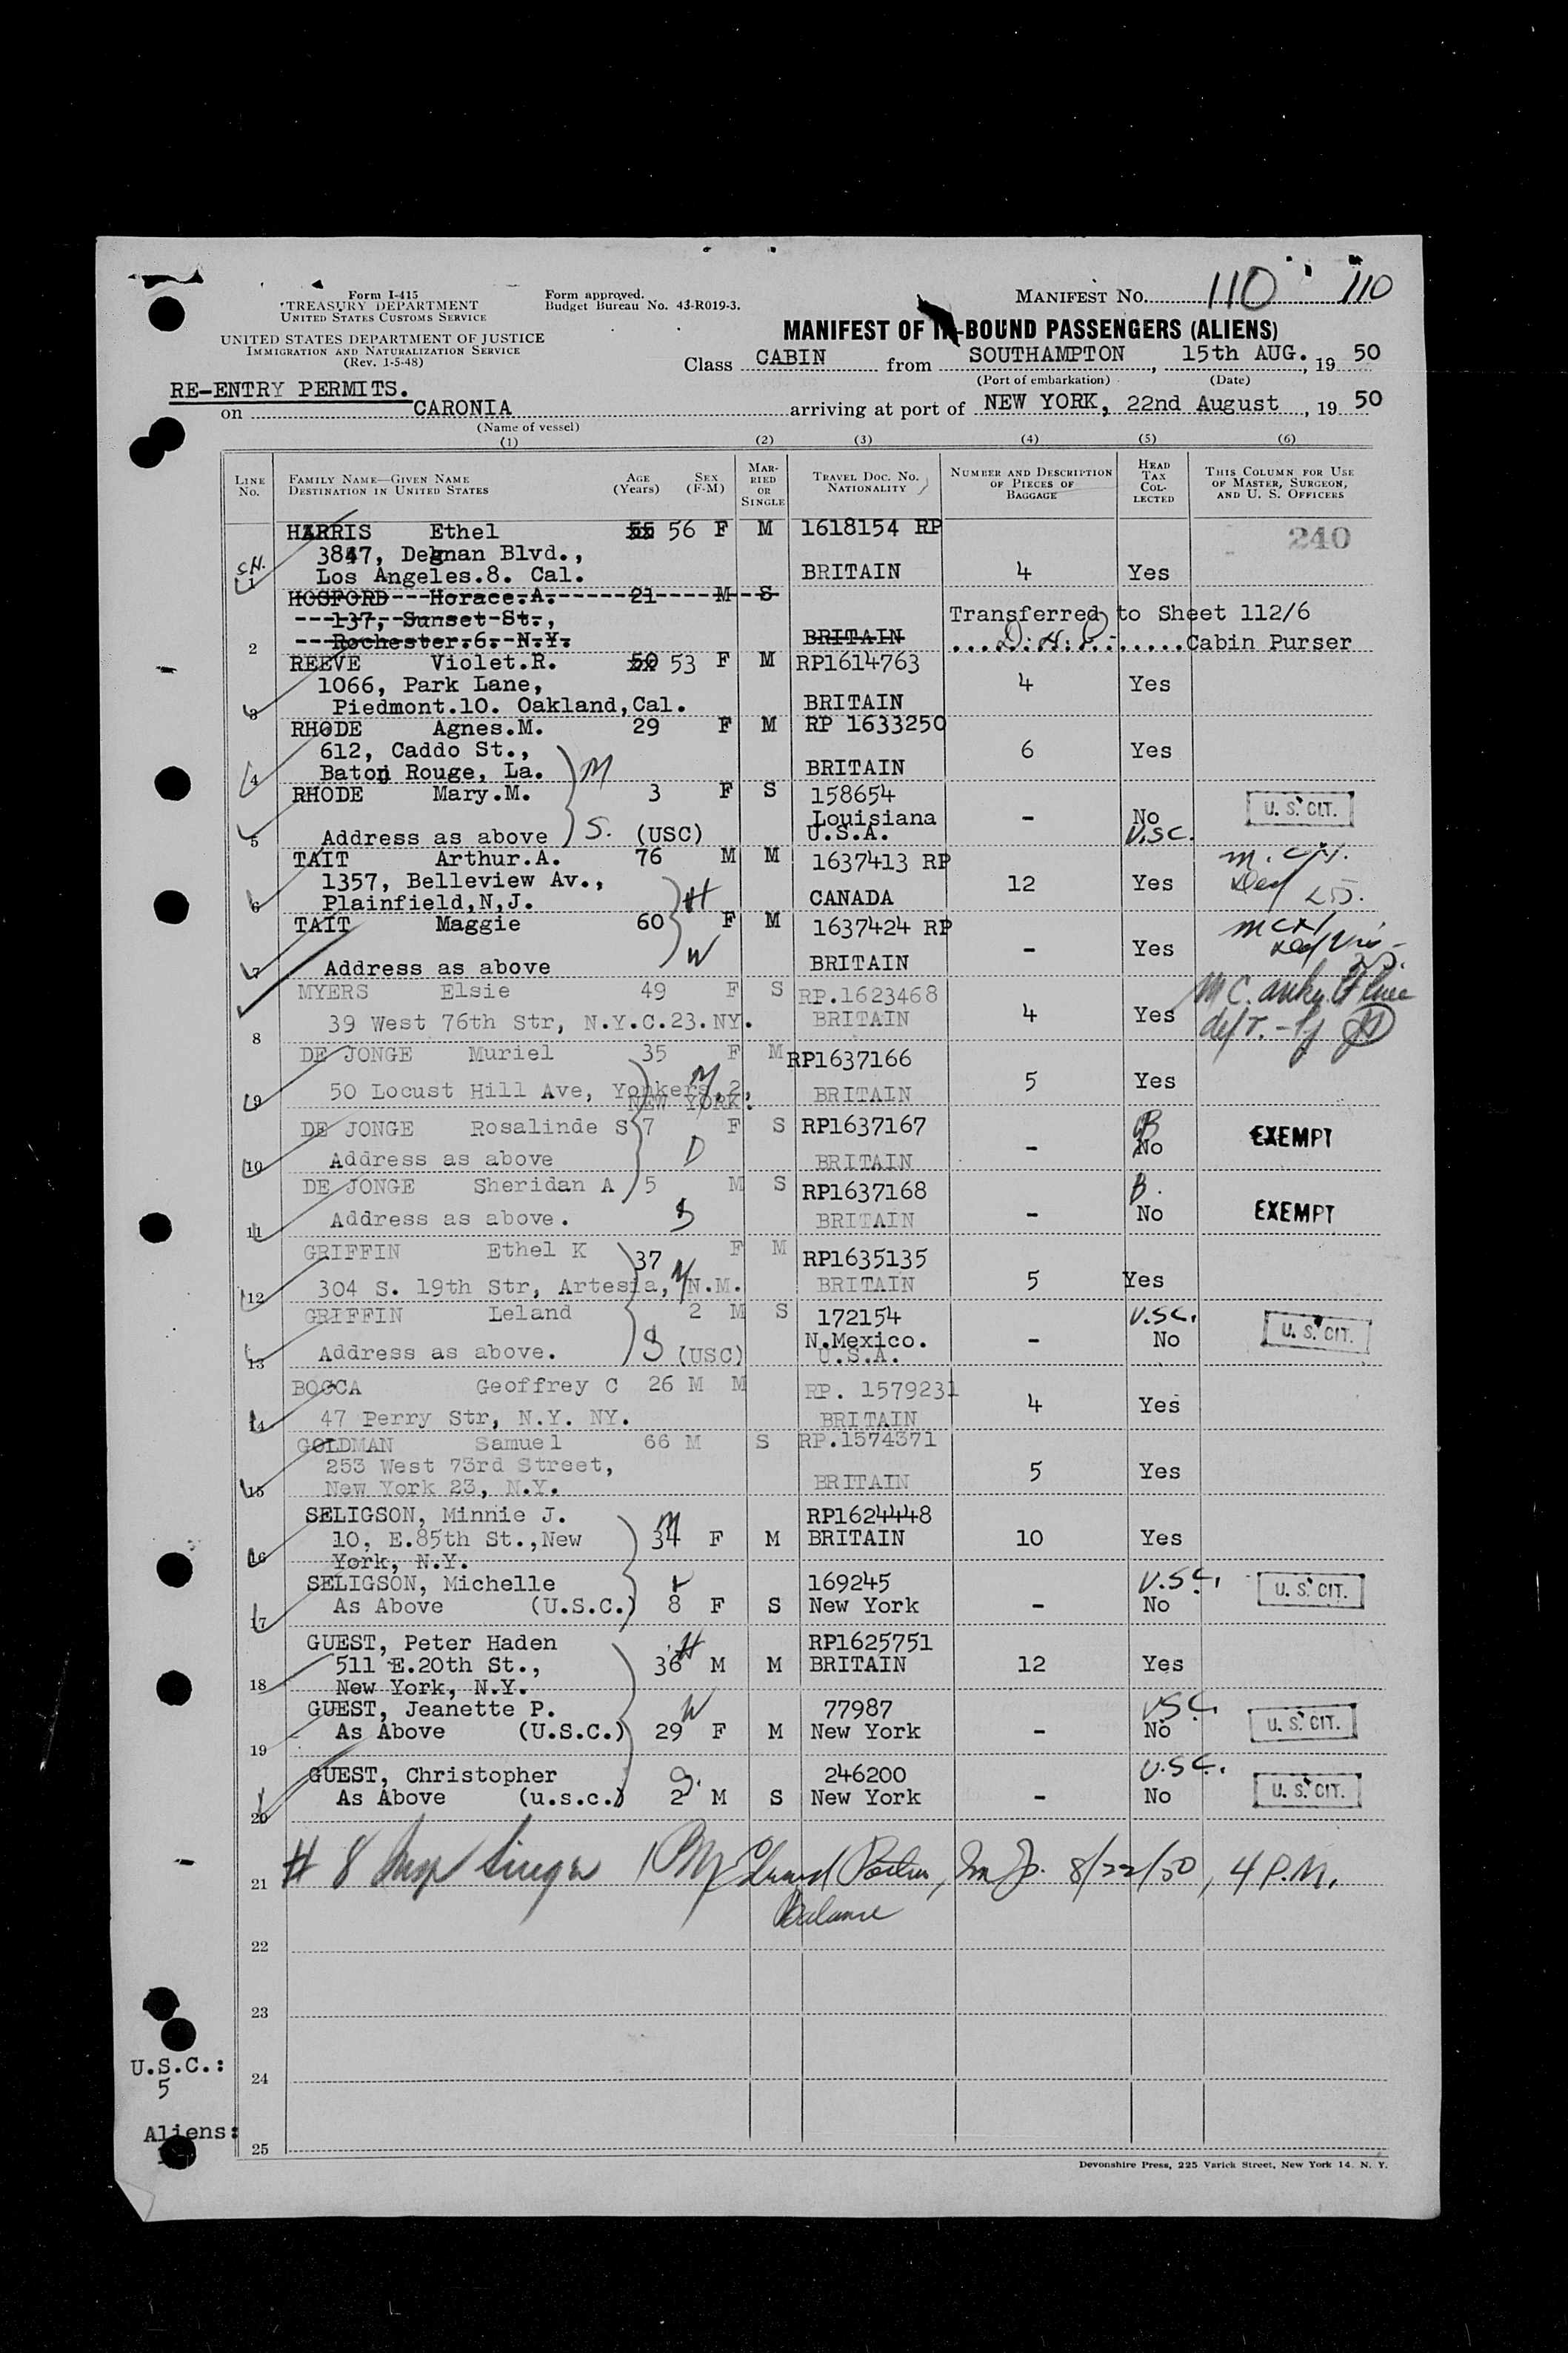 Form I-415
TREASURY DEPARTMENT
UNITED STATES CUSTOMS SERVICE
UNITED STATES DEPARTMENT OF JUSTICE
IMMIGRATION AND NATURALIZATION SERVICE
(Rev. 1-5-48)
Form approved.
Budget Bureau No. 43-R019-3.
MANIFEST No. 110 110
MANIFEST OF IN-BOUND PASSENGERS (ALIENS)
Class CABIN from SOUTHAMPTON, 15th AUG., 19 50
(Port of embarkation) (Date)
RE-ENTRY PERMITS.
on CARONIA arriving at port of NEW YORK, 22nd August, 19 50
(Name of vessel)
(1) (2) (3) (4) (5) (6)
LINE No. FAMILY NAME—GIVEN NAME DESTINATION IN UNITED STATES AGE (Years) SEX (F-M) MARRIED OR SINGLE TRAVEL DOC. NO. NATIONALITY NUMBER AND DESCRIPTION OF PIECES OF BAGGAGE HEAD TAX COLLECTED THIS COLUMN FOR USE OF MASTER, SURGEON, AND U. S. OFFICERS
HARRIS Ethel 55 56 F M 1618154 RP 240
3847, Degnan Blvd.,
1 Los Angeles.8. Cal. BRITAIN 4 Yes
HOSFORD Horace.A. 21 M S
137, Sunset St., Transferred to Sheet 112/6
2 Rochester.6. N.Y. BRITAIN ....D.H.P.......Cabin Purser
REEVE Violet.R. 50 53 F M RP1614763
1066, Park Lane, 4 Yes
3 Piedmont.10. Oakland,Cal. BRITAIN
RHODE Agnes.M. 29 F M RP 1633250
612, Caddo St., 6 Yes
4 Baton Rouge, La. M BRITAIN
RHODE Mary.M. 3 F S 158654 U. S. CIT.
Louisiana - No
5 Address as above S. (USC) U.S.A. U.S.C.
TAIT Arthur.A. 76 M M 1637413 RP
1357, Belleview Av., 12 Yes
6 Plainfield,N,J. H CANADA
TAIT Maggie 60 F M 1637424 RP
- Yes
7 Address as above W BRITAIN
MYERS Elsie 49 F S RP.1623468
8 39 West 76th Str, N.Y.C.23.NY. BRITAIN 4 Yes
DE JONGE Muriel 35 F M RP1637166
9 50 Locust Hill Ave, Yonkers,2, M BRITAIN 5 Yes
NEW YORK.
DE JONGE Rosalinde S 7 F S RP1637167
10 Address as above D BRITAIN - No EXEMPT
DE JONGE Sheridan A 5 M S RP1637168
11 Address as above. S BRITAIN - No EXEMPT
GRIFFIN Ethel K 37 F M RP1635135
12 304 S. 19th Str, Artesia, N.M. M BRITAIN 5 Yes
GRIFFIN Leland 2 M S 172154 U.S.C.
N.Mexico. - No U. S. CIT.
13 Address as above. S (USC) U.S.A.
BOCCA Geoffrey C 26 M M RP. 1579231
14 47 Perry Str, N.Y. NY. BRITAIN 4 Yes
GOLDMAN Samuel 66 M S RP.1574371
253 West 73rd Street,
15 New York 23, N.Y. BRITAIN 5 Yes
SELIGSON, Minnie J. M RP1624448
16 10, E.85th St.,New 34 F M BRITAIN 10 Yes
York, N.Y.
SELIGSON, Michelle 169245 U.S.C. U. S. CIT.
17 As Above (U.S.C.) 8 F S New York - No
GUEST, Peter Haden H RP1625751
18 511 E.20th St., 36 M M BRITAIN 12 Yes
New York, N.Y.
GUEST, Jeanette P. W 77987 USC.
19 As Above (U.S.C.) 29 F M New York - No U. S. CIT.
GUEST, Christopher 246200 U.S.C.
20 As Above (u.s.c.) 2 M S New York - No U. S. CIT.
21 # 8 Insp 8/22/50, 4 P.M.
Balance
22
23
U.S.C.:
5
24
Aliens:
25
Devonshire Press, 225 Varick Street, New York 14. N. Y.